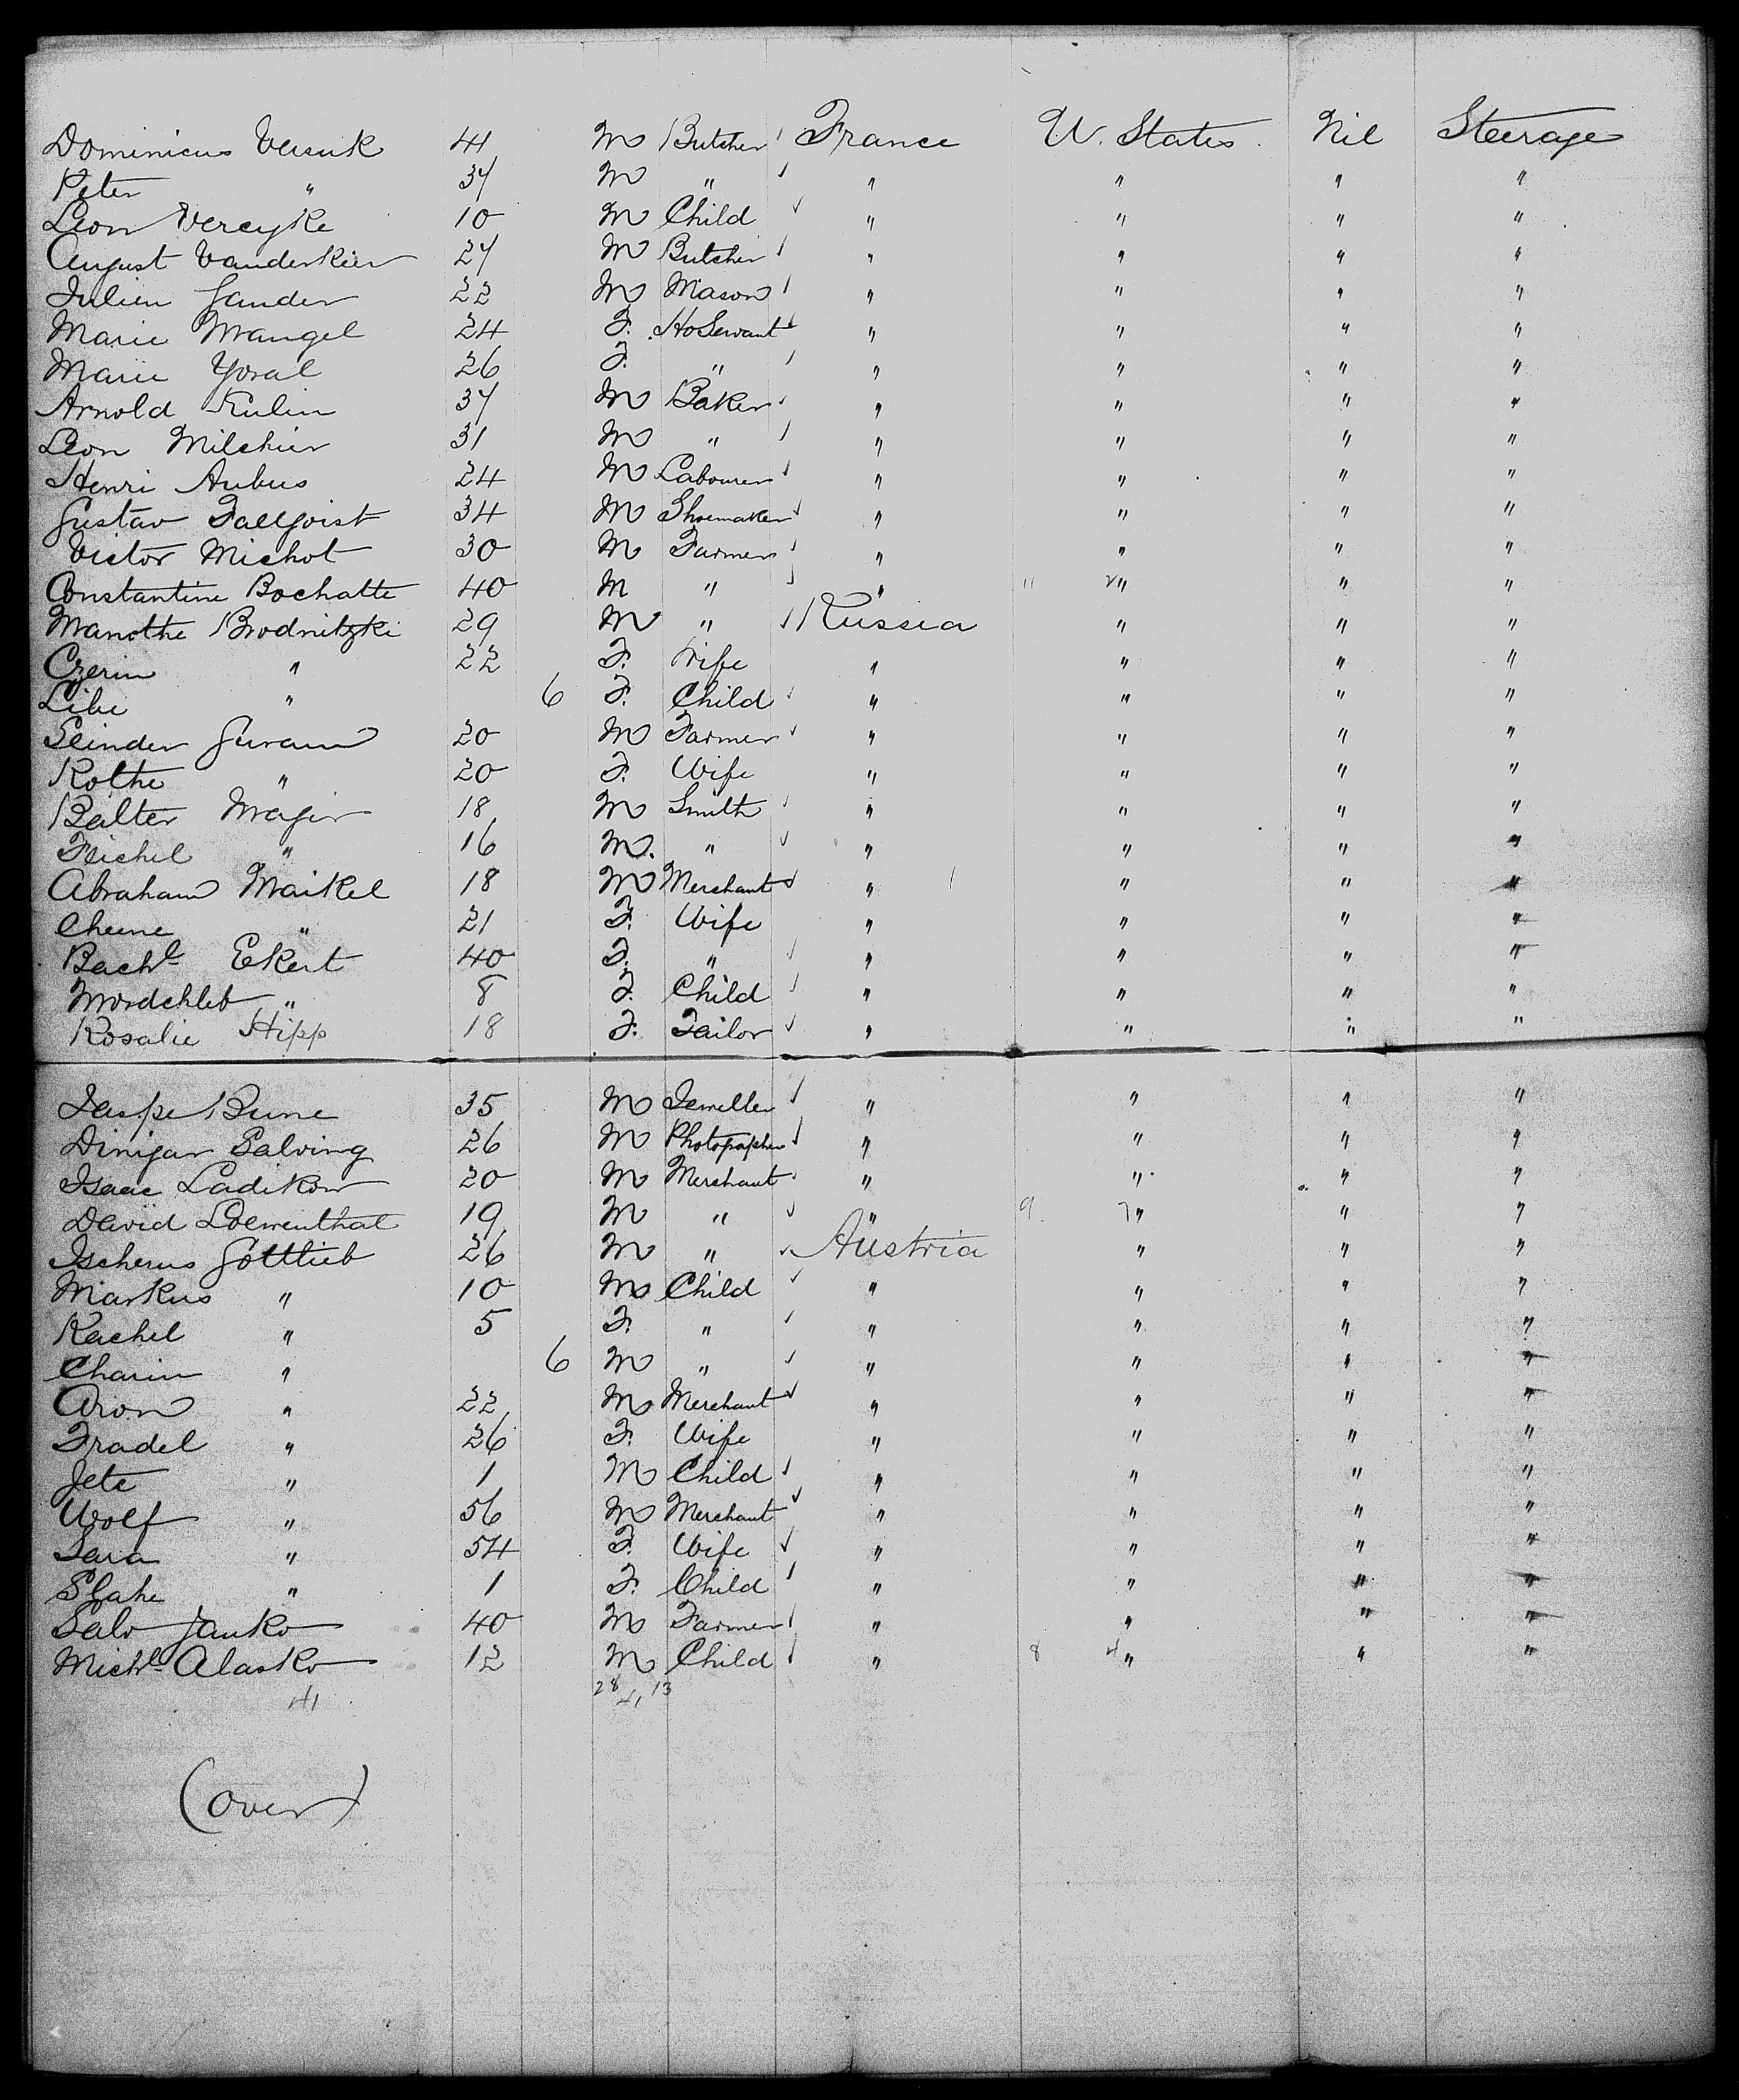 Dominicus Versuk 41 M Butcher France U. States Nil Steerage
Peter " 37 M " " " " "
Leon Vercyke 10 M Child " " " "
August Vanderkier 27 M Butcher " " " "
Julien Gander 22 M Mason " " " "
Marie Wrangel 24 F. Ho Servant " " " "
Marie Yoral 26 F. " " " " "
Arnold Kulin 37 M Baker " " " "
Leon Milchier 31 M " " " " "
Henri Aubus 24 M Labourer " " " "
Gustav Fallqoist 34 M Shoemaker " " " "
Victor Michot 30 M Farmer " " " "
Constantine Bochatte 40 M " " 11 2 " " "
Manothe Brodnitzki 29 M " Russia " " "
Czerin " 22 F. Wife " " " "
Libe " 6 F. Child " " " "
Leinder Guram 20 M Farmer " " " "
Rothe " 20 F. Wife " " " "
Balter Majer 18 M Smith " " " "
Feichel " 16 M. " " " " "
Abraham Maikel 18 M Merchant " " " "
Cheine " 21 F. Wife " " " "
Bachl Ekert 40 F. " " " " "
Mordchleb " 8 F. Child " " " "
Rosalie Hipp 18 F. Tailor " " " "
Jaspe Bune 35 M Jeweller " " " "
Dinijar Salving 26 M Photographer " " " "
Isaac Ladikow 20 M Merchant " " " "
David Loewenthal 19 M " " 9 7 " " "
Ischerus Gottlieb 26 M " Austria " " "
Markus " 10 M Child " " " "
Rachel " 5 F. " " " " "
Charin " 6 M " " " " "
Aron " 22 M Merchant " " " "
Fradel " 26 F. Wife " " " "
Jete " 1 M Child " " " "
Wolf " 56 M Merchant " " " "
Sara " 54 F. Wife " " " "
Slahe " 1 F. Child " " " "
Salo Janko 40 M Farmer " " " "
Michl Alasko 12 M Child " 8 4 " " "
41 28 41 13
(over)